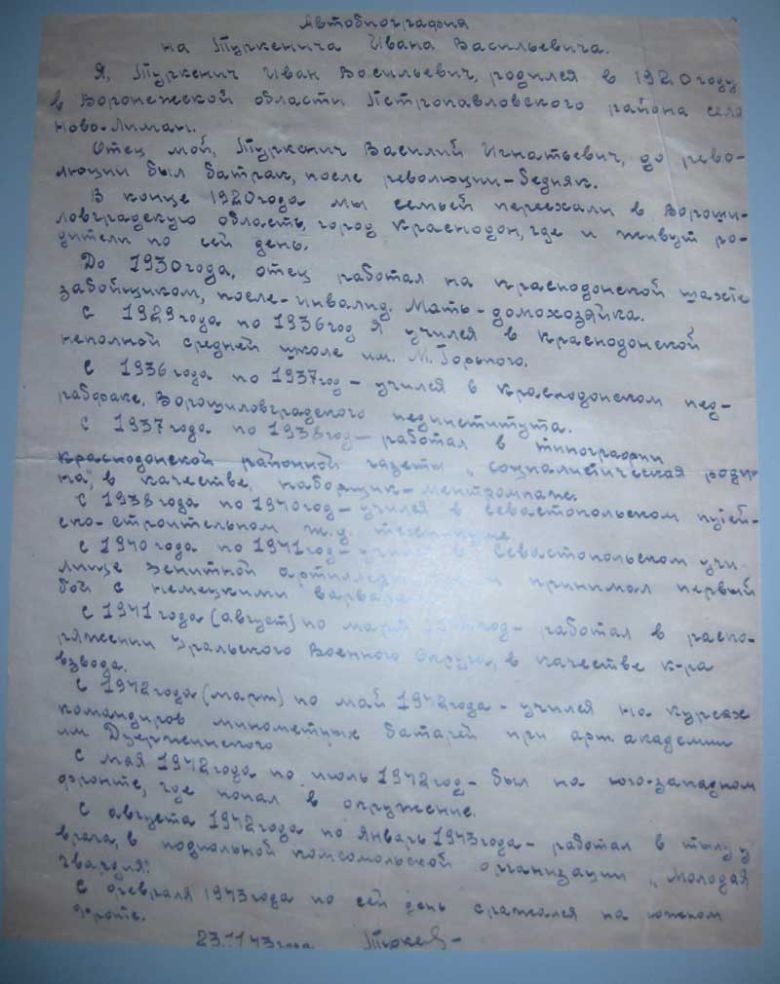 Автобиография
на Туркенича Ивана Васильевича.
Я, Туркенич Иван Васильевич, родился в 1920 году
в Воронежской области Петропавловского района село
Ново-Лиман.
Отец мой, Туркенич Василий Игнатьевич, до рево-
люции был батрак, после революции - бедняк.
В конце 1920 года мы семьей переехали в Вороши-
ловградскую область, город Краснодон, где и живут ро-
дители по сей день.
До 1930 года, отец работал на Краснодонской шахте
забойщиком, после - инвалид. Мать - домохозяйка.
С 1929 года по 1936 год я учился в Краснодонской
неполной средней школе им. М. Горького.
С 1936 года по 1937 год - учился в Краснодонском пед-
рабфаке, Ворошиловградского пединститута.
С 1937 года по 1938 год - работал в типографии
Краснодонской районной газеты „Социалистическая роди-
на", в качестве, наборщик-
С 1938 года по 1940 год - учился в Севастопольском
строительном ж.у. техникуме
С 1940 года по 1941 год - учился в Севастопольском учи-
лище Зенитной принимал первый
бой с немецкими
С 1941 года (август) по март год - работал в распо-
ряжении Уральского Военного Округа, в качестве к-ра
взвода.
С 1942 года (март) по май 1942 года - учился на курсах
командиров минометных батарей при арт. академии
им Дзержинского
С мая 1942 года по июль 1942 год - был на юго-западном
фронте, где попал в окружение.
С августа 1942 года по январь 1943 года - работал в тылу у
врага, в подпольной комсомольской организации „Молодая
гвардия".
С февраля 1943 года по сей день сражался на южном
фронте.
43 года.